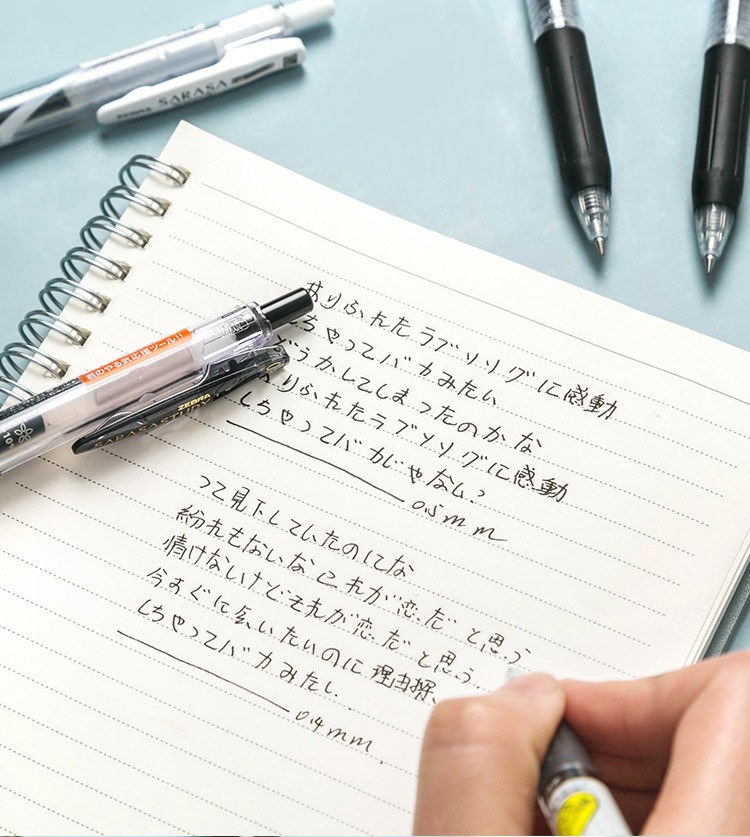 ZEBRA SARASA
ありふれたラブソングに感動
しちゃってバカみたい
どうかしてしまったのかな
ありふれたラブソングに感動
しちゃってバカじゃない?
0.5mm
って見下していたのにな
紛れもないな これが恋だと思う
情けないけどそれが恋だと思う
今すぐに会いたいのに理由探
しちゃってバカみたい.
0.4mm.
君のやる気応援ツール!!
ZEBRA
SARASASTUDY